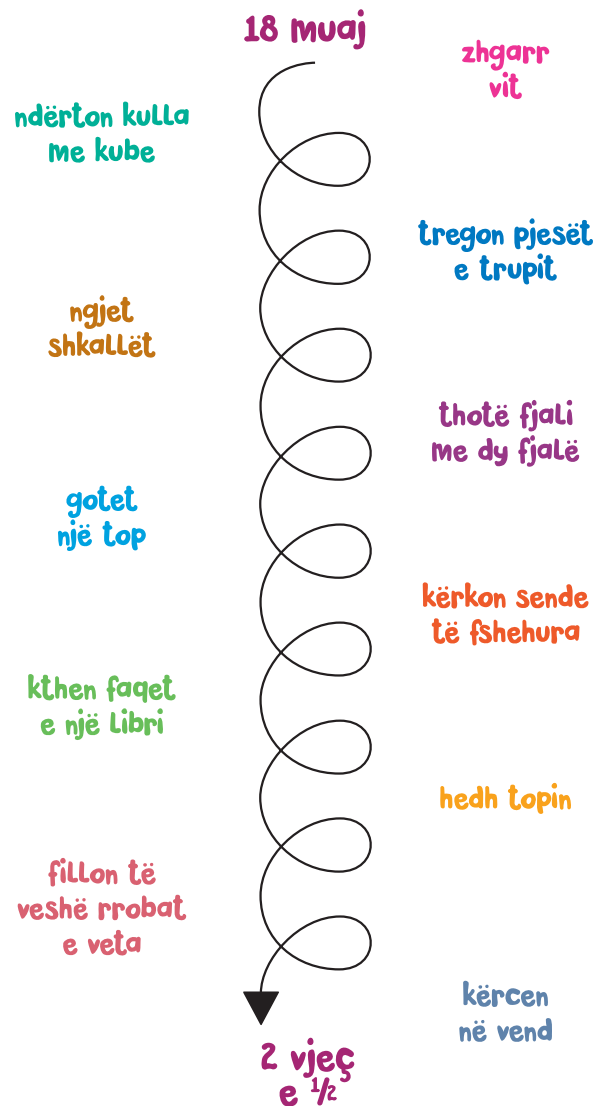 18 muaj
zhgarr
vit
ndërton kulla
me kube
tregon pjesët
e trupit
ngjet
shkallët
thotë fjali
me dy fjalë
gotet
një top
kërkon sende
të fshehura
kthen faqet
e një libri
hedh topin
fillon të
veshë rrobat
e veta
kërcen
në vend
2 vjeç
e ½